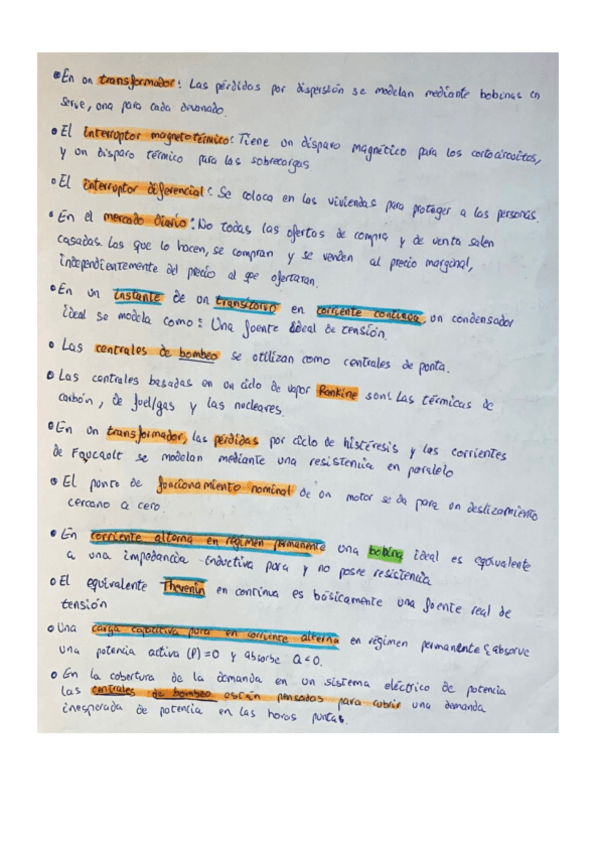 • En un transformador: Las pérdidas por dispersión se modelan mediante bobinas en
serie, una para cada devanado.
• El interruptor magnetotérmico: Tiene un disparo magnético para los cortocircuitos,
y un disparo térmico para las sobrecargas
• El interruptor diferencial: Se coloca en las viviendas para proteger a las personas.
• En el mercado diario: No todas las ofertas de compra y de venta salen
casadas. Las que lo hacen, se compran y se venden al precio marginal,
independientemente del precio al que ofertaran.
• En un instante de un transitorio en corriente continua, un condensador
ideal se modela como: Una fuente ideal de tensión.
• Las centrales de bombeo se utilizan como centrales de punta.
• Las centrales basadas en un ciclo de vapor Rankine son: Las térmicas de
carbón, de fuel/gas y las nucleares.
• En un transformador, las pérdidas por ciclo de histéresis y las corrientes
de Foucault se modelan mediante una resistencia en paralelo
• El punto de funcionamiento nominal de un motor se da para un deslizamiento
cercano a cero.
• En corriente alterna en régimen permanente una bobina ideal es equivalente
a una impedancia inductiva pura y no posee resistencia
• El equivalente Thevenin en continua es básicamente una fuente real de
tensión
• Una carga capacitiva pura en corriente alterna en régimen permanente absorve
una potencia activa (P)=0 y absorbe Q<0.
• En la cobertura de la demanda en un sistema eléctrico de potencia
las centrales de bombeo están pensadas para cubrir una demanda
inesperada de potencia en las horas puntas.